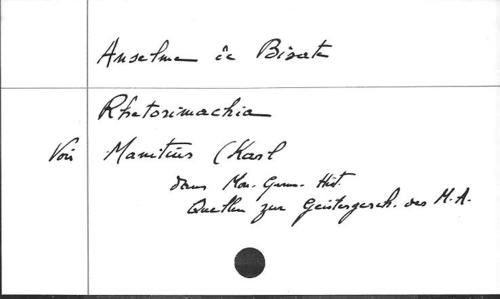 Anselme de Bisate
Rhetorimachia
Voir Manitius (Karl
dans Mon. Germ. Hist.
Quellen zur Geistesgesch. des M.A.